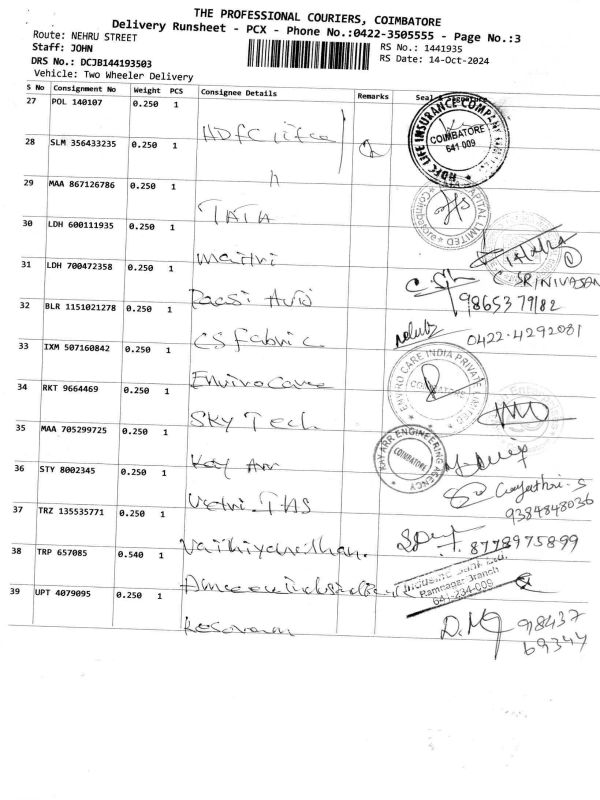 THE PROFESSIONAL COURIERS, COIMBATORE
Delivery Runsheet - PCX - Phone No.:0422-3505555 - Page No.:3
Route: NEHRU STREET
Staff: JOHN
RS No.: 1441935
DRS No.: DCJB144193503
RS Date: 14-Oct-2024
Vehicle: Two Wheeler Delivery
S No Consignment No Weight PCS Consignee Details Remarks Seal & Signature
27 POL 140107 0.250 1 HDFC life
HDFC LIFE INSURANCE COMPANY
COIMBATORE
641 009
28 SLM 356433235 0.250 1 "
29 MAA 867126786 0.250 1 TATA
CAPITAL LIMITED
Coimbatore
30 LDH 600111935 0.250 1 Maitri
31 LDH 700472358 0.250 1 Auto
C SRINIVASAN
98653 79182
32 BLR 1151021278 0.250 1 CS fabric
0422-4292081
33 IXM 507160842 0.250 1 Enviro Care
ENVIRO CARE INDIA PRIVATE
COIMBATORE
34 RKT 9664469 0.250 1 SKY Tech
35 MAA 705299725 0.250 1 Kay Arr
KAY ARR ENGINEERING AGENCY
COIMBATORE
36 STY 8002345 0.250 1 Vetri. IAS
Gayathri. S
9384848036
37 TRZ 135535771 0.250 1 Vaithiyanathan.
8778975899
38 TRP 657085 0.540 1
Ramnagar Branch
39 UPT 4079095 0.250 1
98437
69344